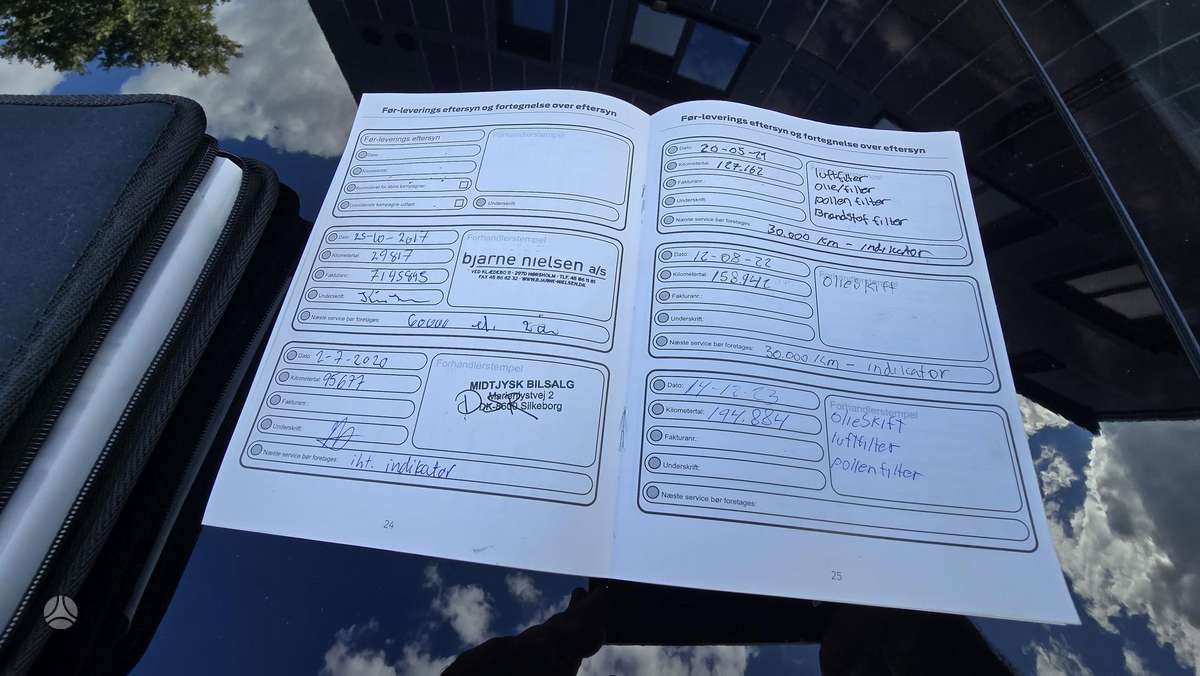 Før-leverings eftersyn og fortegnelse over eftersyn
Før-leverings eftersyn
Dato:
Kilometertal:
Kontrolleret for åbne kampagner:
Udestående kampagne udført:
Forhandlerstempel
Underskrift:
Dato: 25-10-2017
Kilometertal: 29817
Fakturanr.: 7195945
Underskrift:
Næste service bør foretages: 60000 el. 2 år
Forhandlerstempel
bjarne nielsen a/s
VED KLÆDEBO 11 · 2970 HØRSHOLM · TLF. 45 86 11 81
FAX 45 86 62 32 · WWW.BJARNE-NIELSEN.DK
Dato: 2-7-2020
Kilometertal: 95677
Fakturanr.:
Underskrift:
Næste service bør foretages: iht. indikator
Forhandlerstempel
MIDTJYSK BILSALG
DK-8600 Silkeborg
24
Før-leverings eftersyn og fortegnelse over eftersyn
Dato: 20-05-21
Kilometertal: 127.162
Fakturanr.:
Underskrift:
Næste service bør foretages: 30.000 km - indikator
luftfilter
olie/filter
pollen filter
Brandstof filter
Dato: 12-08-22
Kilometertal: 158.942
Fakturanr.:
Underskrift:
Næste service bør foretages: 30.000 km - indikator
Forhandlerstempel
OlieSkift
Dato: 14-12-23
Kilometertal: 194.884
Fakturanr.:
Underskrift:
Næste service bør foretages:
Forhandlerstempel
OlieSkift
luftfilter
pollenfilter
25